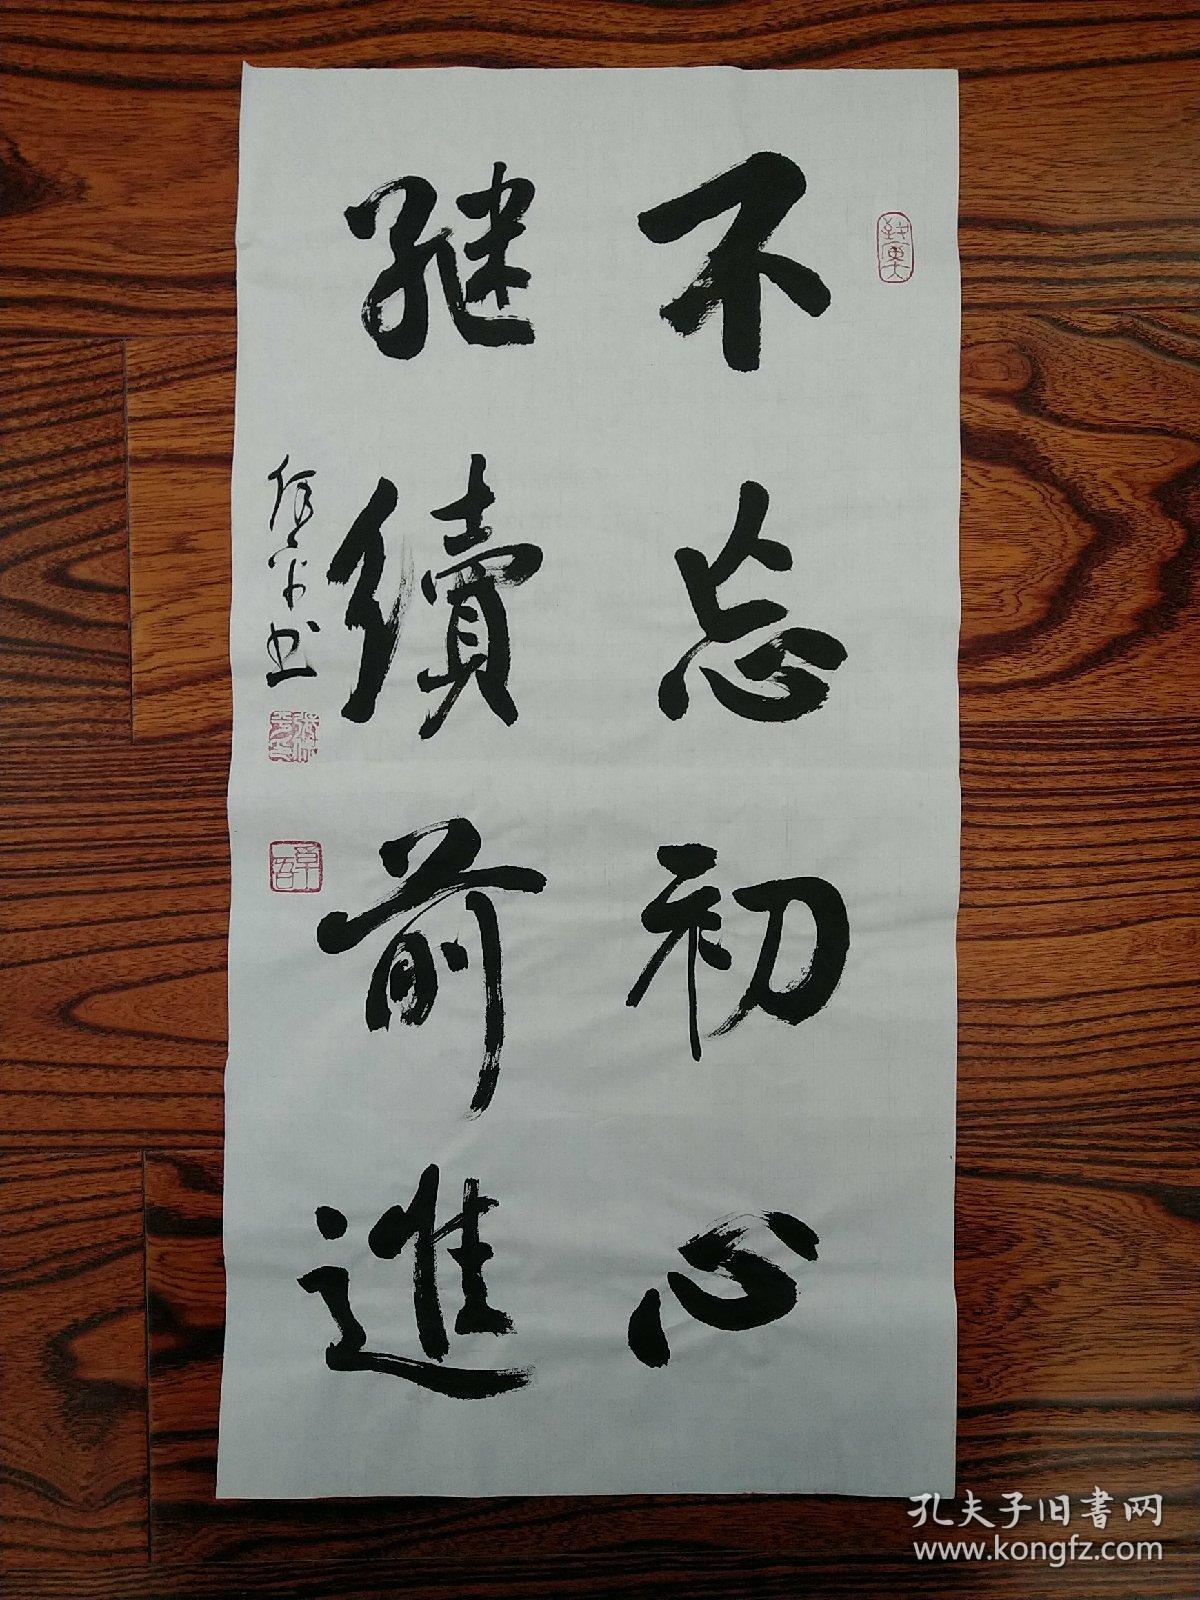 不忘初心
继續前進
孔夫子旧書网
www.kongfz.com